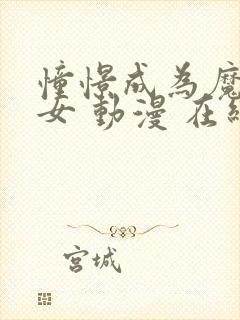 憧憬成為魔
女 動漫 在線
宮城